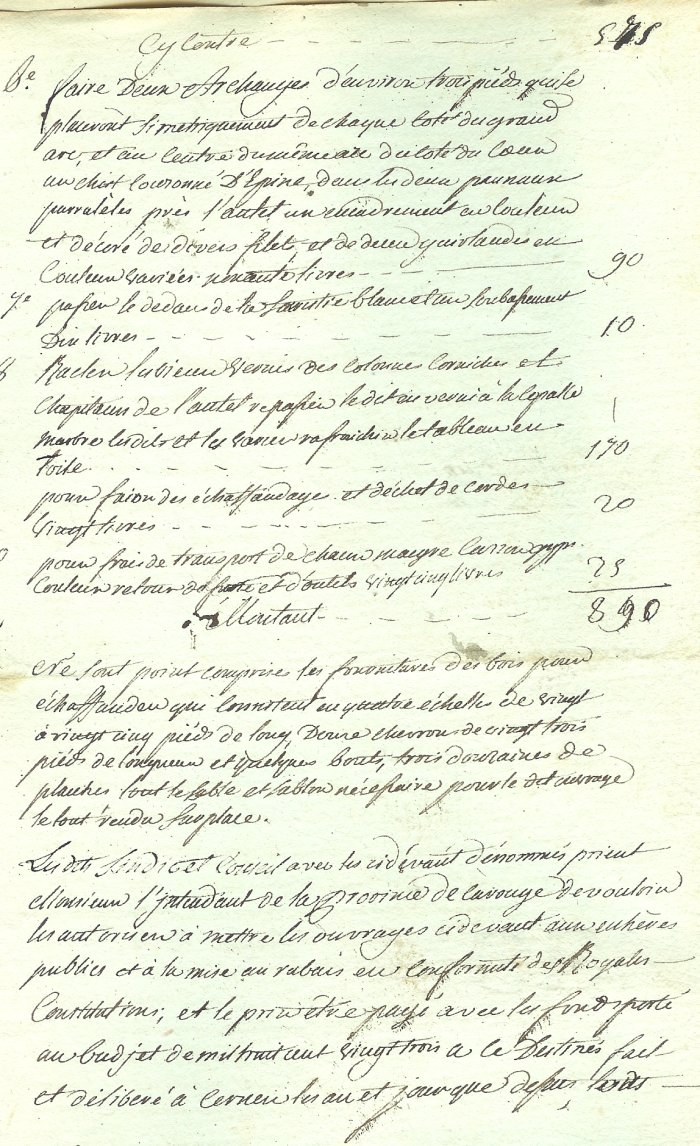 Cy Contre - - - - - 575
6.e faire Deux Archanges d'environ trois pieds qui se
placeront Simetriquement de chaque Coté du grand
arc, et au Centre du même arc du Coté du Coeur
un christ Couronné D'Epine, dans les deux pannaux
parraleles près l'autel un encadrement en Couleur
et décoré de divers filet, et de deux guirlandes en
Couleur variées nonante livres - - - 90
7.e passer le dedans de la Sacristie blanc et un Soubassement
Dix livres - - - - - 10
8 Racler les vieux Vernis des Colonnes Corniches et
Chapitaux de l'autel repasser le dit au verni à la Copalle
marbre les dits et les varier rafraichir le tableau en
toile. - - - - - 170
pour façon des échaffaudage et déchet de Cordes -
Vingt livres - - - - - 20
pour frais de transport de chaux maigre Carron gyps
Couleur retour de et d'outils vingt cinq livres 25
Montant - - - - - 890
Ne Sont point comprises les fournitures des bois pour
échaffauder qui Consistent en quatre échelles de vingt
à vingt cinq pieds de long, Douze chevrons de vingt trois
pieds de longueur et quelques bouts, trois douzaines de
planches tout le Sable et Sablon nécessaire pour le dit ouvrage
le tout rendu Sur place.
Lesdits Sindic et Conseil avec les cidevant dénommés prient
Monsieur l'jntendant de la Province de Carouge de vouloir
les autoriser à mettre les ouvrages cidevant aux enhères
publics et à la mise au rabais en Conformité des Royales -
Constitutions; et le prix être payé avec les fonds porté
au budjet de mil huit cent vingt trois a ce Destinés fait
et délibéré à Cernex les an et jour que dessus lesdits -